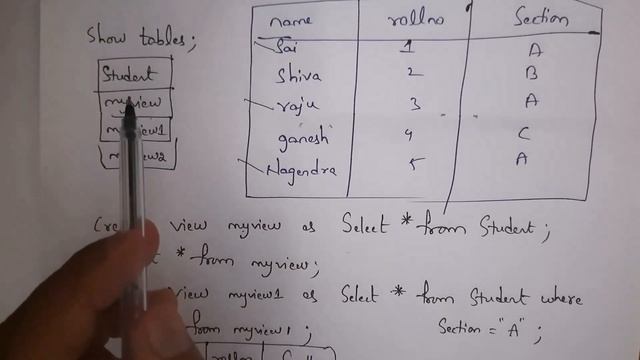 Show tables;
Student
myview
myview1
name rollno Section
Sai 1 A
Shiva 2 B
raju 3 A
ganesh 4 C
Nagendra 5 A
view myview as Select * from Student;
* from myview;
view myview1 as Select * from Student where
Section = "A";
from myview1;
rollno